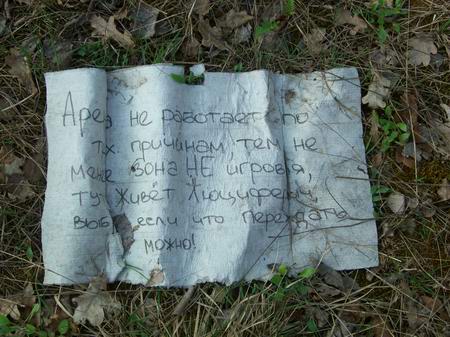 Аре, не работает по
тх. причинам, тем не
мене зона НЕ игровя,
тут живёт Люцифер и
выб, если что переждать
можно!